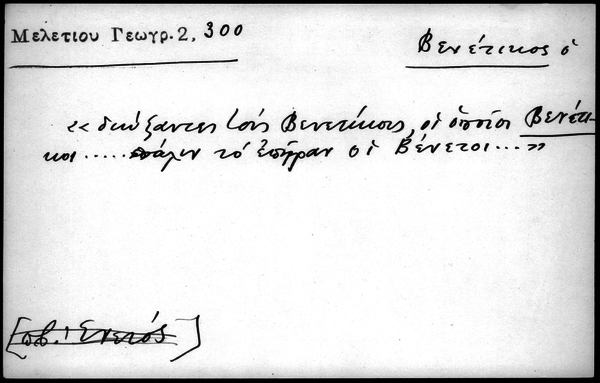 Μελετίου Γεωγρ. 2, 300
Βενέτικος ὁ
«διώξαντες τοὺς Βενετίκους, οἱ ὁποῖοι Βενέτι-
κοι..... πάλιν τὸ ἐπῆραν οἱ Βένετοι...»
[πβ. Ενετός]